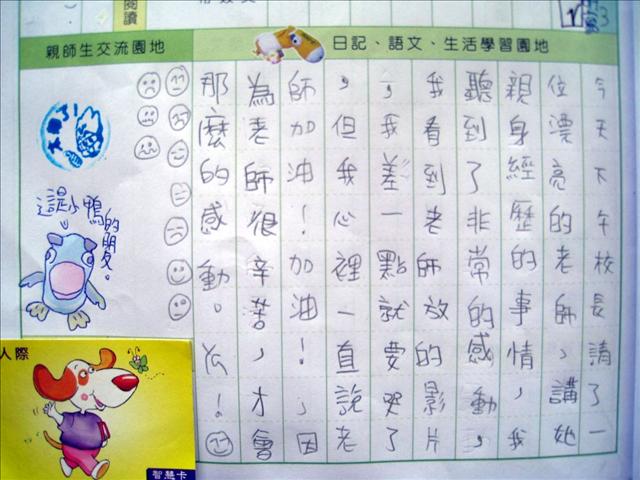 閱讀
日記、語文、生活學習園地
今天下午校長請了一
位漂亮的老師，講她
親身經歷的事情，我
聽到了非常的感動，
我看到老師放的影片
，我差一點就要哭了
，但我心裡一直說老
師加油！加油！，因
為老師很辛苦，才會
那麼的感動。！
親師生交流園地
太棒了
這是小鴨的朋友。
人際
智慧卡